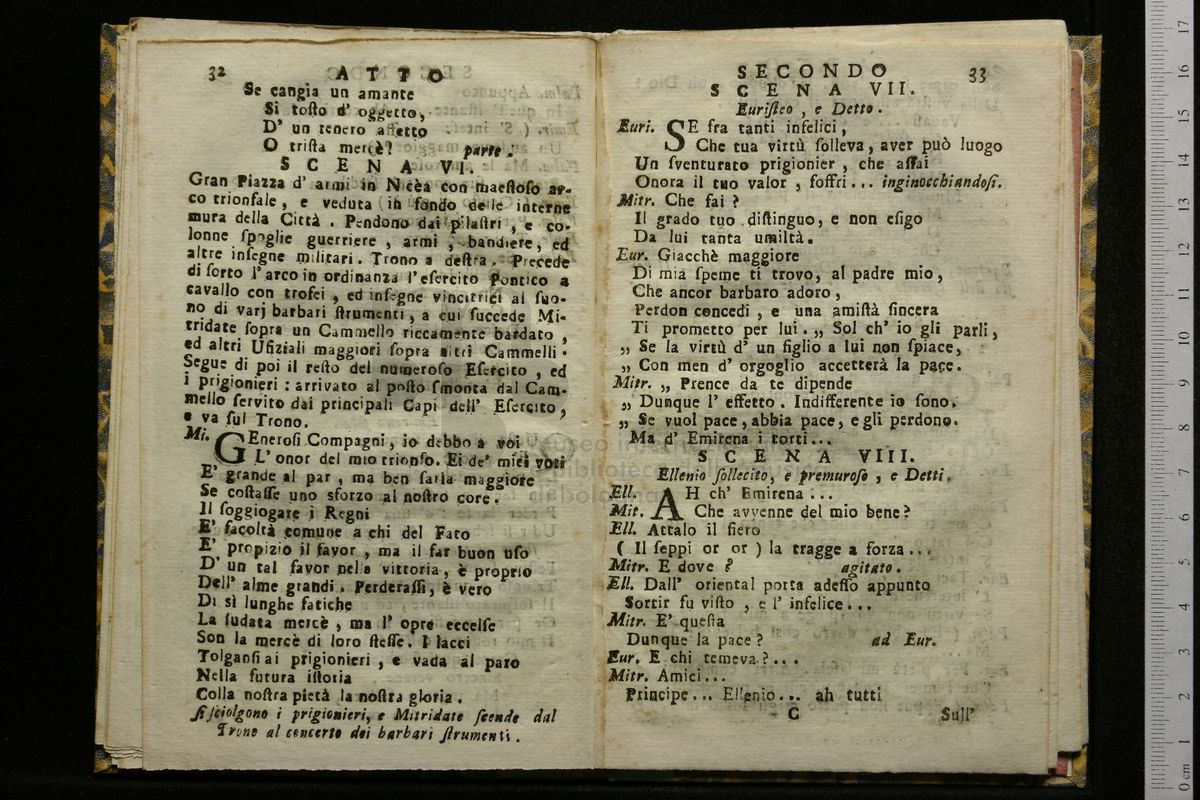 32 ATTO
Se cangia un amante
Si toſto d' oggetto,
D' un tenero affetto
O triſta mercè! parte.
SCENA VI.
Gran Piazza d' armi in Nicèa con maeſtoſo ar-
co trionfale, e veduta in fondo delle interne
mura della Città. Pendono dai pilaſtri, e co-
lonne ſpoglie guerriere, armi, bandiere, ed
altre inſegne militari. Trono a deſtra. Precede
di ſorto l'arco in ordinanza l'eſercito Pontico a
cavallo con trofei, ed inſegne vincitrici al ſuo-
no di varj barbari ſtrumenti, a cui ſuccede Mi-
tridate ſopra un Cammello riccamente bardato,
ed altri Ufiziali maggiori ſopra altri Cammelli.
Segue di poi il reſto del numeroſo Eſercito, ed
i prigionieri: arrivato al poſto ſmonta dal Cam-
mello ſervito dai principali Capi dell' Eſercito,
e va ſul Trono.
Mi. GEneroſi Compagni, io debbo a voi
L' onor del mio trionfo. Ei de' miei voti
E' grande al par, ma ben ſaria maggiore
Se coſtaſſe uno sforzo al noſtro core.
Il ſoggiogare i Regni
E' facoltà comune a chi del Fato
E' propizio il favor, ma il far buon uſo
D' un tal favor nella vittoria, è proprio
Dell' alme grandi. Perderaſſi, è vero
Di sì lunghe fatiche
La ſudata mercè, ma l' opre eccelſe
Son la mercè di loro ſteſſe. I lacci
Tolganſi ai prigionieri, e vada al paro
Nella futura iſtoria
Colla noſtra pietà la noſtra gloria.
ſi ſciolgono i prigionieri, e Mitridate ſcende dal
Trono al concerto dei barbari ſtrumenti.
SECONDO 33
SCENA VII.
Euriſteo, e Detto.
Euri. SE fra tanti infelici,
Che tua virtù ſolleva, aver può luogo
Un ſventurato prigionier, che aſſai
Onora il tuo valor, ſoffri... inginocchiandoſi.
Mitr. Che fai?
Il grado tuo diſtinguo, e non eſigo
Da lui tanta umiltà.
Eur. Giacchè maggiore
Di mia ſpeme ti trovo, al padre mio,
Che ancor barbaro adoro,
Perdon concedi, e una amiſtà ſincera
Ti prometto per lui. „ Sol ch' io gli parli,
„ Se la virtù d' un figlio a lui non ſpiace,
„ Con men d' orgoglio accetterà la pace.
Mitr. „ Prence da te dipende
„ Dunque l' effetto. Indifferente io ſono.
„ Se vuol pace, abbia pace, e gli perdono.
Ma d' Emirena i torti...
SCENA VIII.
Ellenio ſollecito, e premuroſo, e Detti.
Ell. AH ch' Emirena...
Mit. Che avvenne del mio bene?
Ell. Attalo il fiero
( Il ſeppi or or ) la tragge a forza...
Mitr. E dove? agitato.
Ell. Dall' oriental porta adeſſo appunto
Sortir fu viſto, e l' infelice...
Mitr. E' queſta
Dunque la pace? ad Eur.
Eur. E chi temeva?...
Mitr. Amici...
Principe... Ellenio... ah tutti
C Sull'